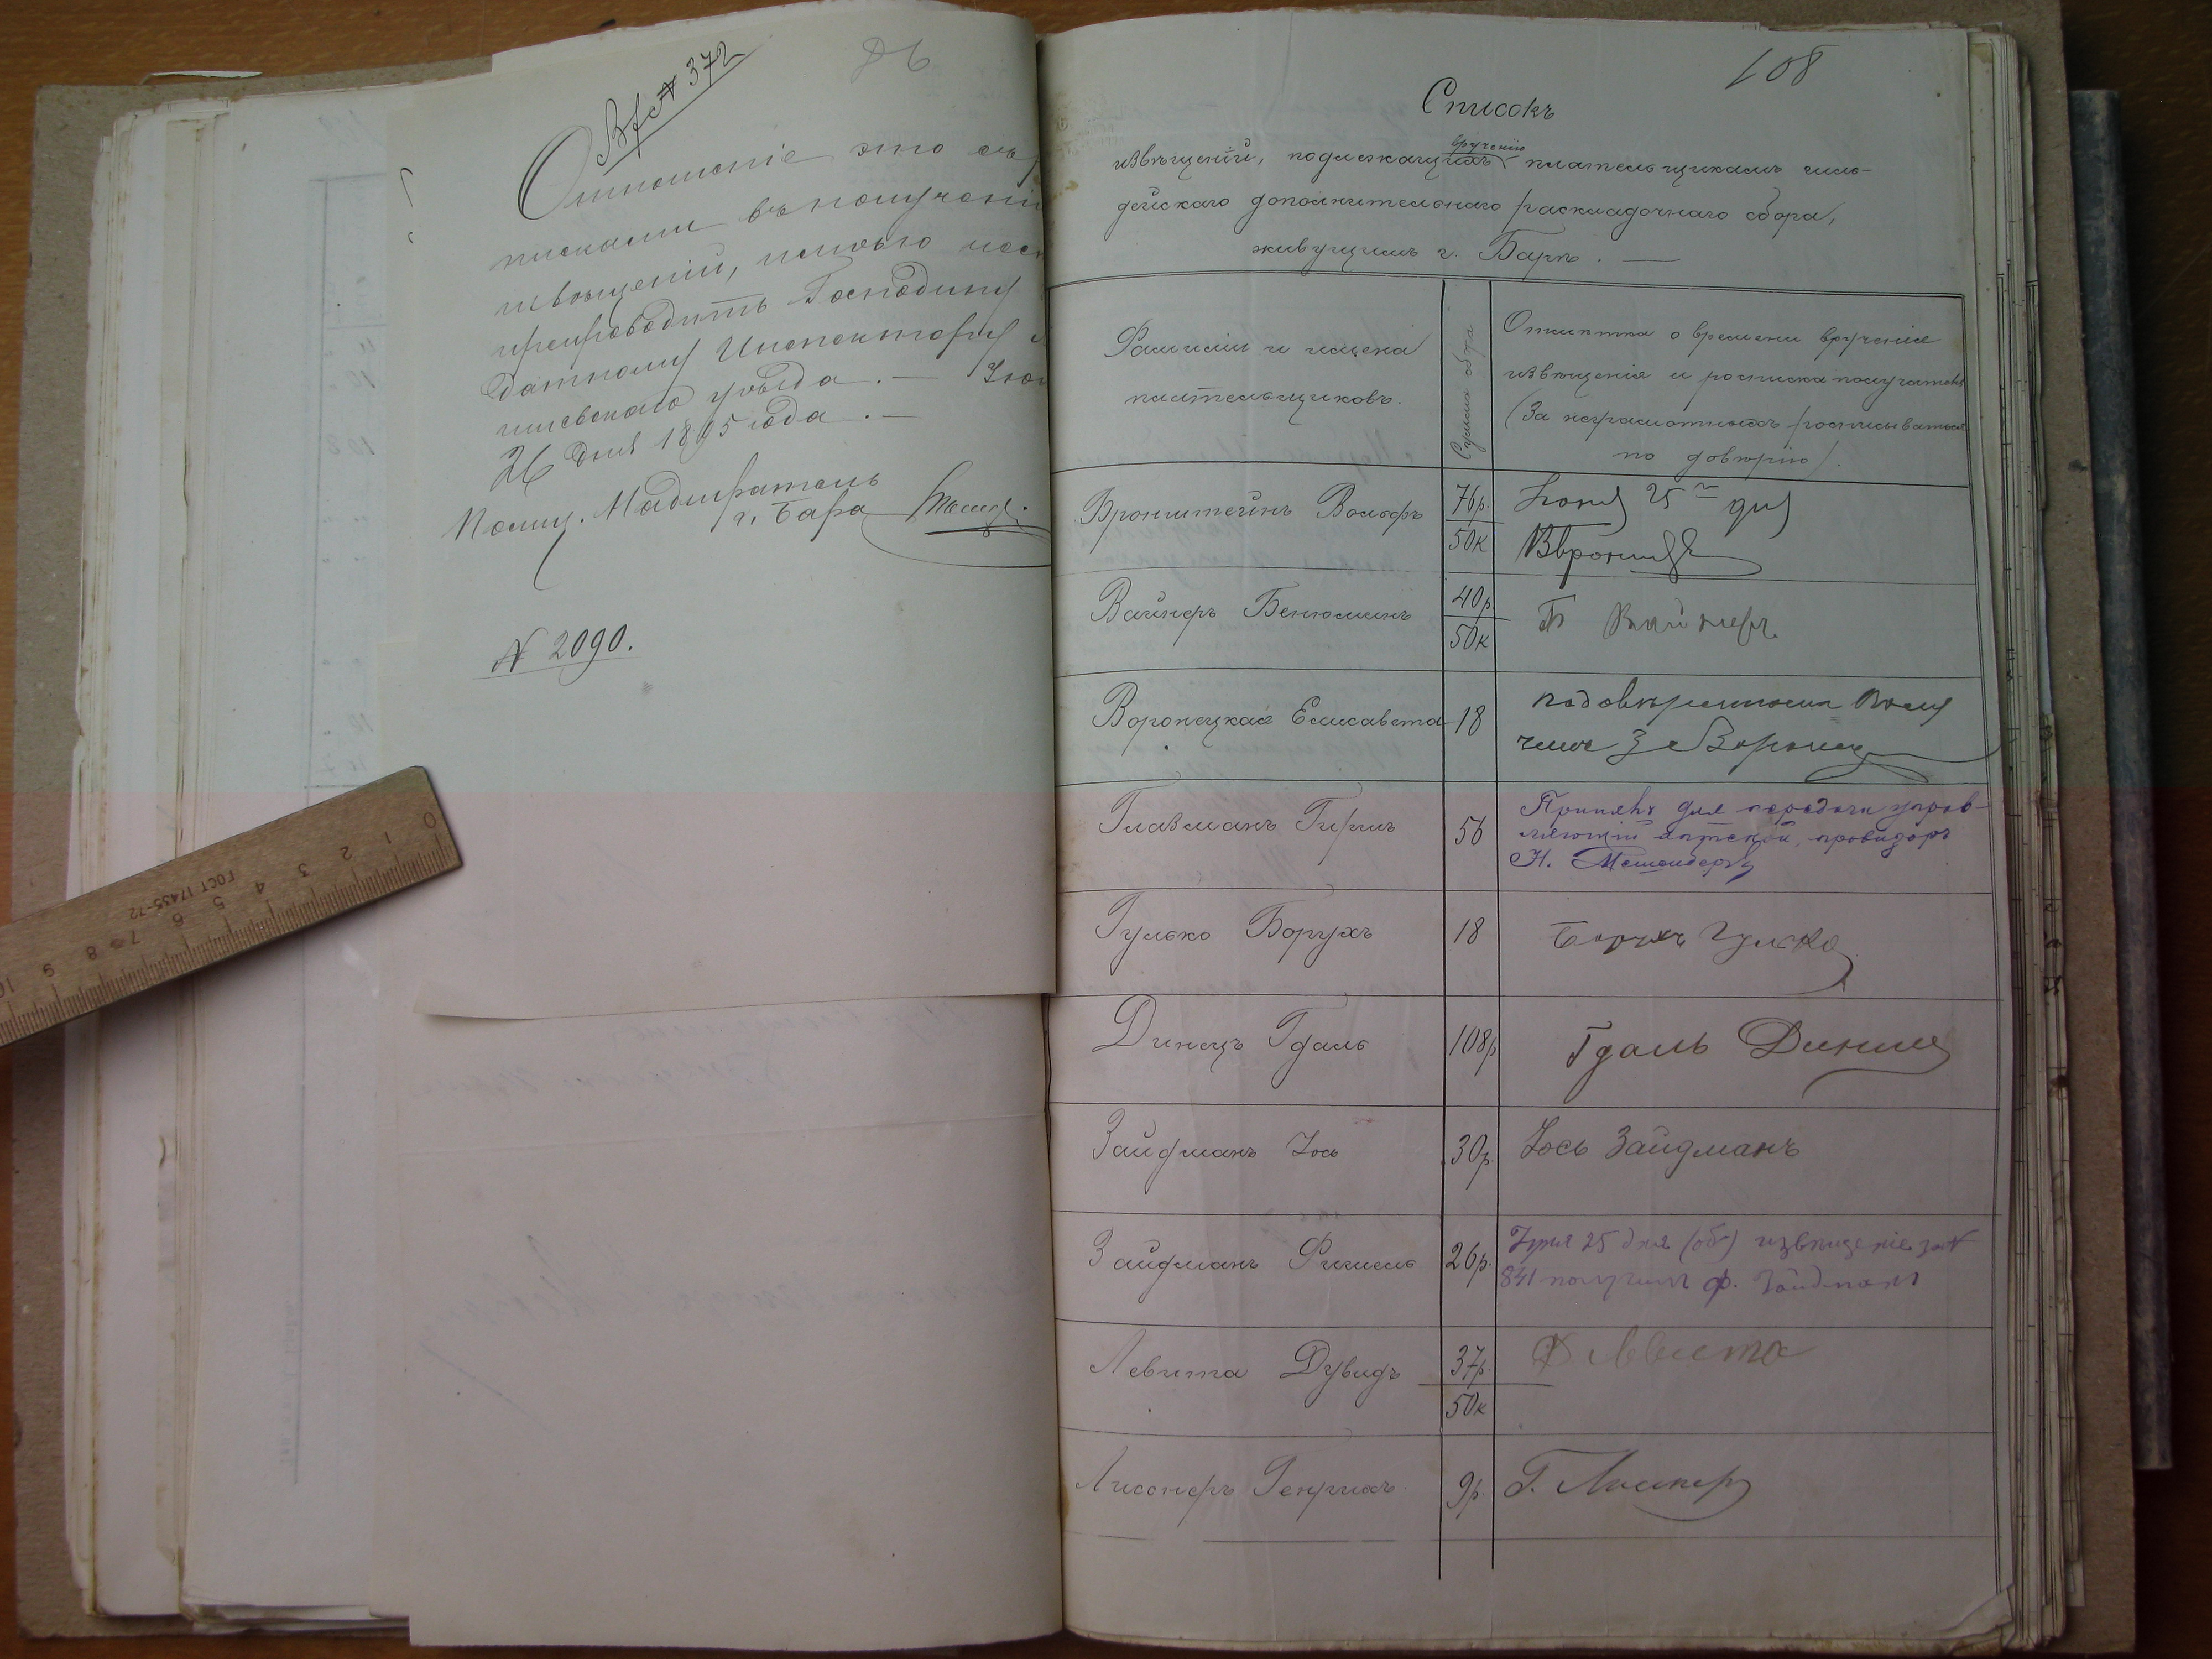 Вх № 372
Отношеніе это съ
писками въ полученіи
извѣщеній, имѣю
препроводить Господину
датному Инспектору
уѣзда. —
26 дня 1895 года. —
Полиц. Надзиратель
г. Бара
N 2090.
108
Списокъ
вручению
извѣщеній, подлежащихъ плательщикамъ гиль-
дейскаго дополнительнаго раскладочнаго сбора,
живущимъ г. Барѣ. —
Фамиліи и имена
плательщиковъ.
Сумма сбора
Отмѣтка о времени врученія
извѣщенія и росписка получателя
(За неграмотныхъ росписываться
по довѣрію).
Бронштейнъ Вольфъ
76р.
50к
Іюня 25 дня
Вайнеръ Бенюминъ
40р.
50к
Б Вайнеръ.
Воронецкая Елисавета
18
Глазманъ Гершъ
56
Принялъ для передачи управ-
ляющій аптекой, провизоръ
Гулько Борухъ
18
Борухъ Гулько
Динецъ Гдаль
108р
Гдаль Динец
Зайдманъ Іось
30р.
Іось Зайдманъ
Зайдманъ Фишель
26р.
Іуня 25 дня (об) извѣщеніе за N
841 получилъ Ф. Зайдманъ
Левита Дувидъ
37р.
50к
Д Левита
Лиснеръ Генрихъ
9р.
Г. Лиснер
0 1 2 3 4 5 6 7 8 9 10
ГОСТ 17435-72